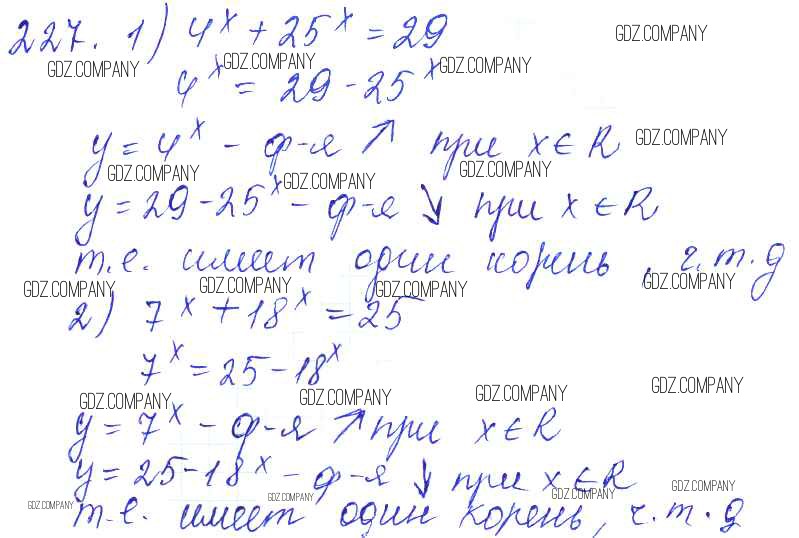 227. 1) 4^x + 25^x = 29
GDZ.COMPANY
GDZ.COMPANY GDZ.COMPANY GDZ.COMPANY
4^x = 29 - 25^x
y = 4^x - ф-я ↗ при x ∈ R GDZ.COMPANY
GDZ.COMPANY GDZ.COMPANY GDZ.COMPANY
y = 29 - 25^x - ф-я ↘ при x ∈ R
т.е. имеет один корень, ч.т.д
GDZ.COMPANY GDZ.COMPANY GDZ.COMPANY GDZ.COMPANY
2) 7^x + 18^x = 25
7^x = 25 - 18^x
GDZ.COMPANY GDZ.COMPANY GDZ.COMPANY GDZ.COMPANY
y = 7^x - ф-я ↗ при x ∈ R
y = 25 - 18^x - ф-я ↓ при x ∈ R
GDZ.COMPANY GDZ.COMPANY GDZ.COMPANY GDZ.COMPANY
т.е. имеет один корень, ч.т.д